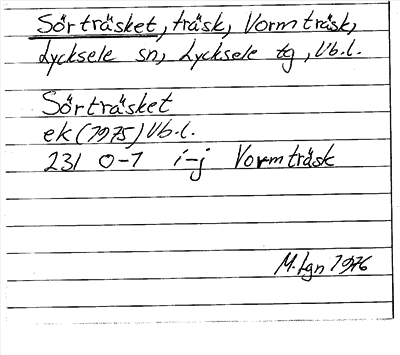 Sörträsket, träsk, Vormträsk,
Lycksele sn, Lycksele tg, Vb.l.
Sörträsket
ek (1975) Vb.l.
231 0-1 i-j Vormträsk
M. Lgn 1976